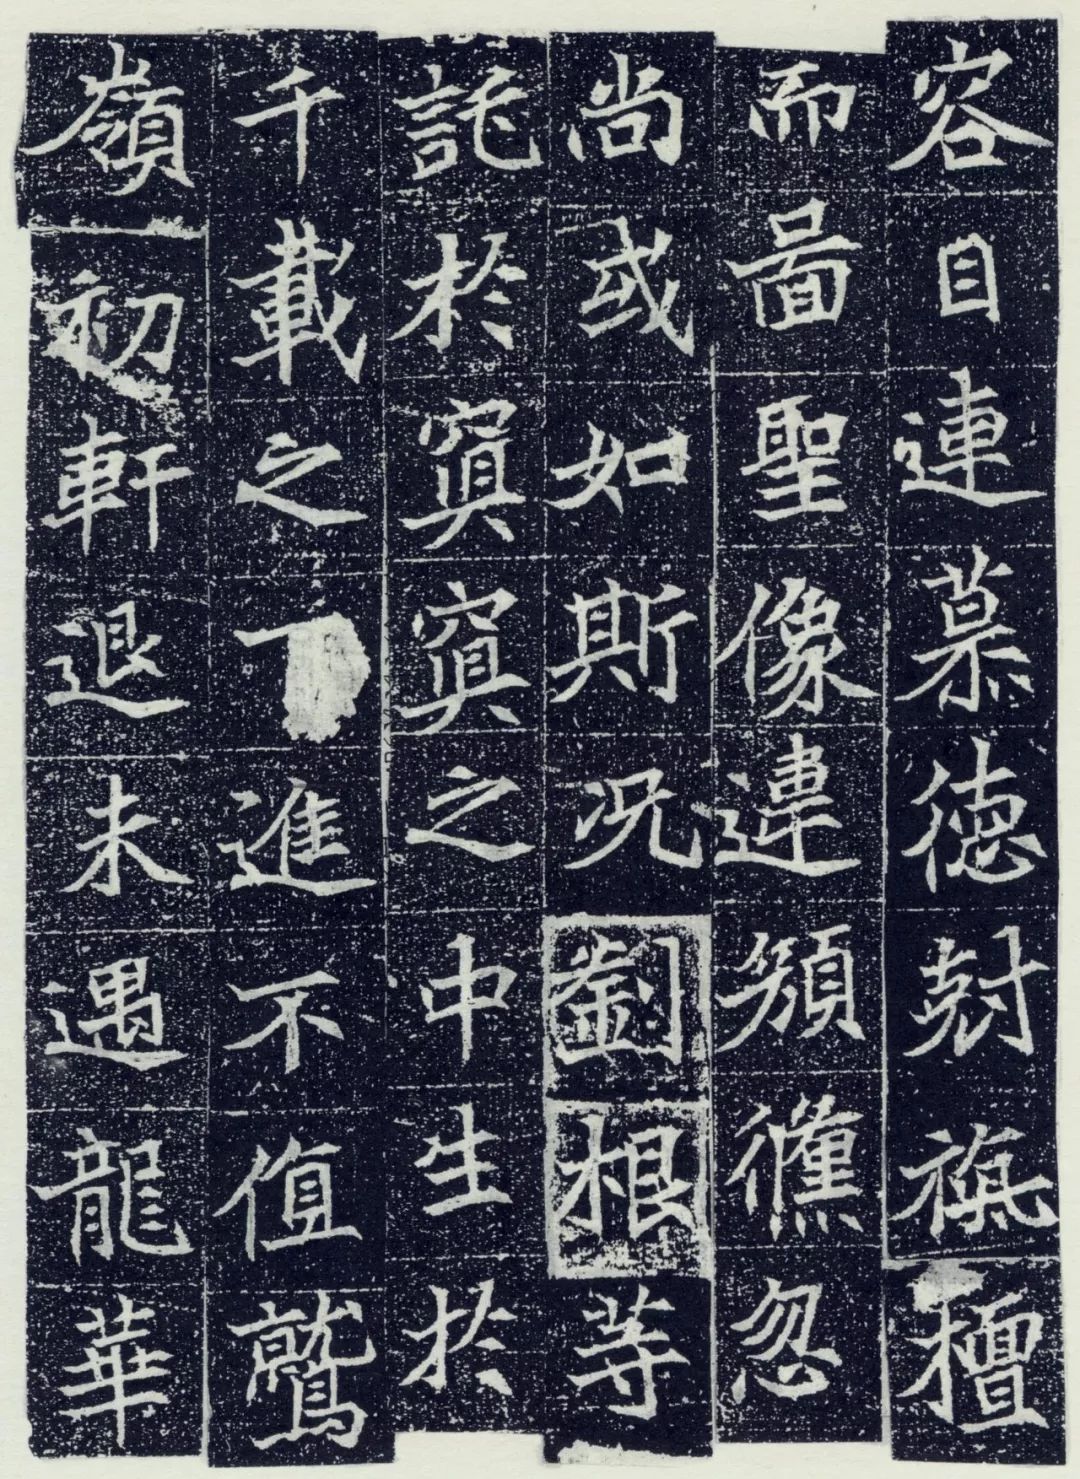 容目連慕德尅旃檀
而啚聖像違顏儵忽
尚或如斯况劉根等
託於冥冥之中生於
千載之下進不值鷲
嶺初軒退未遇龍華